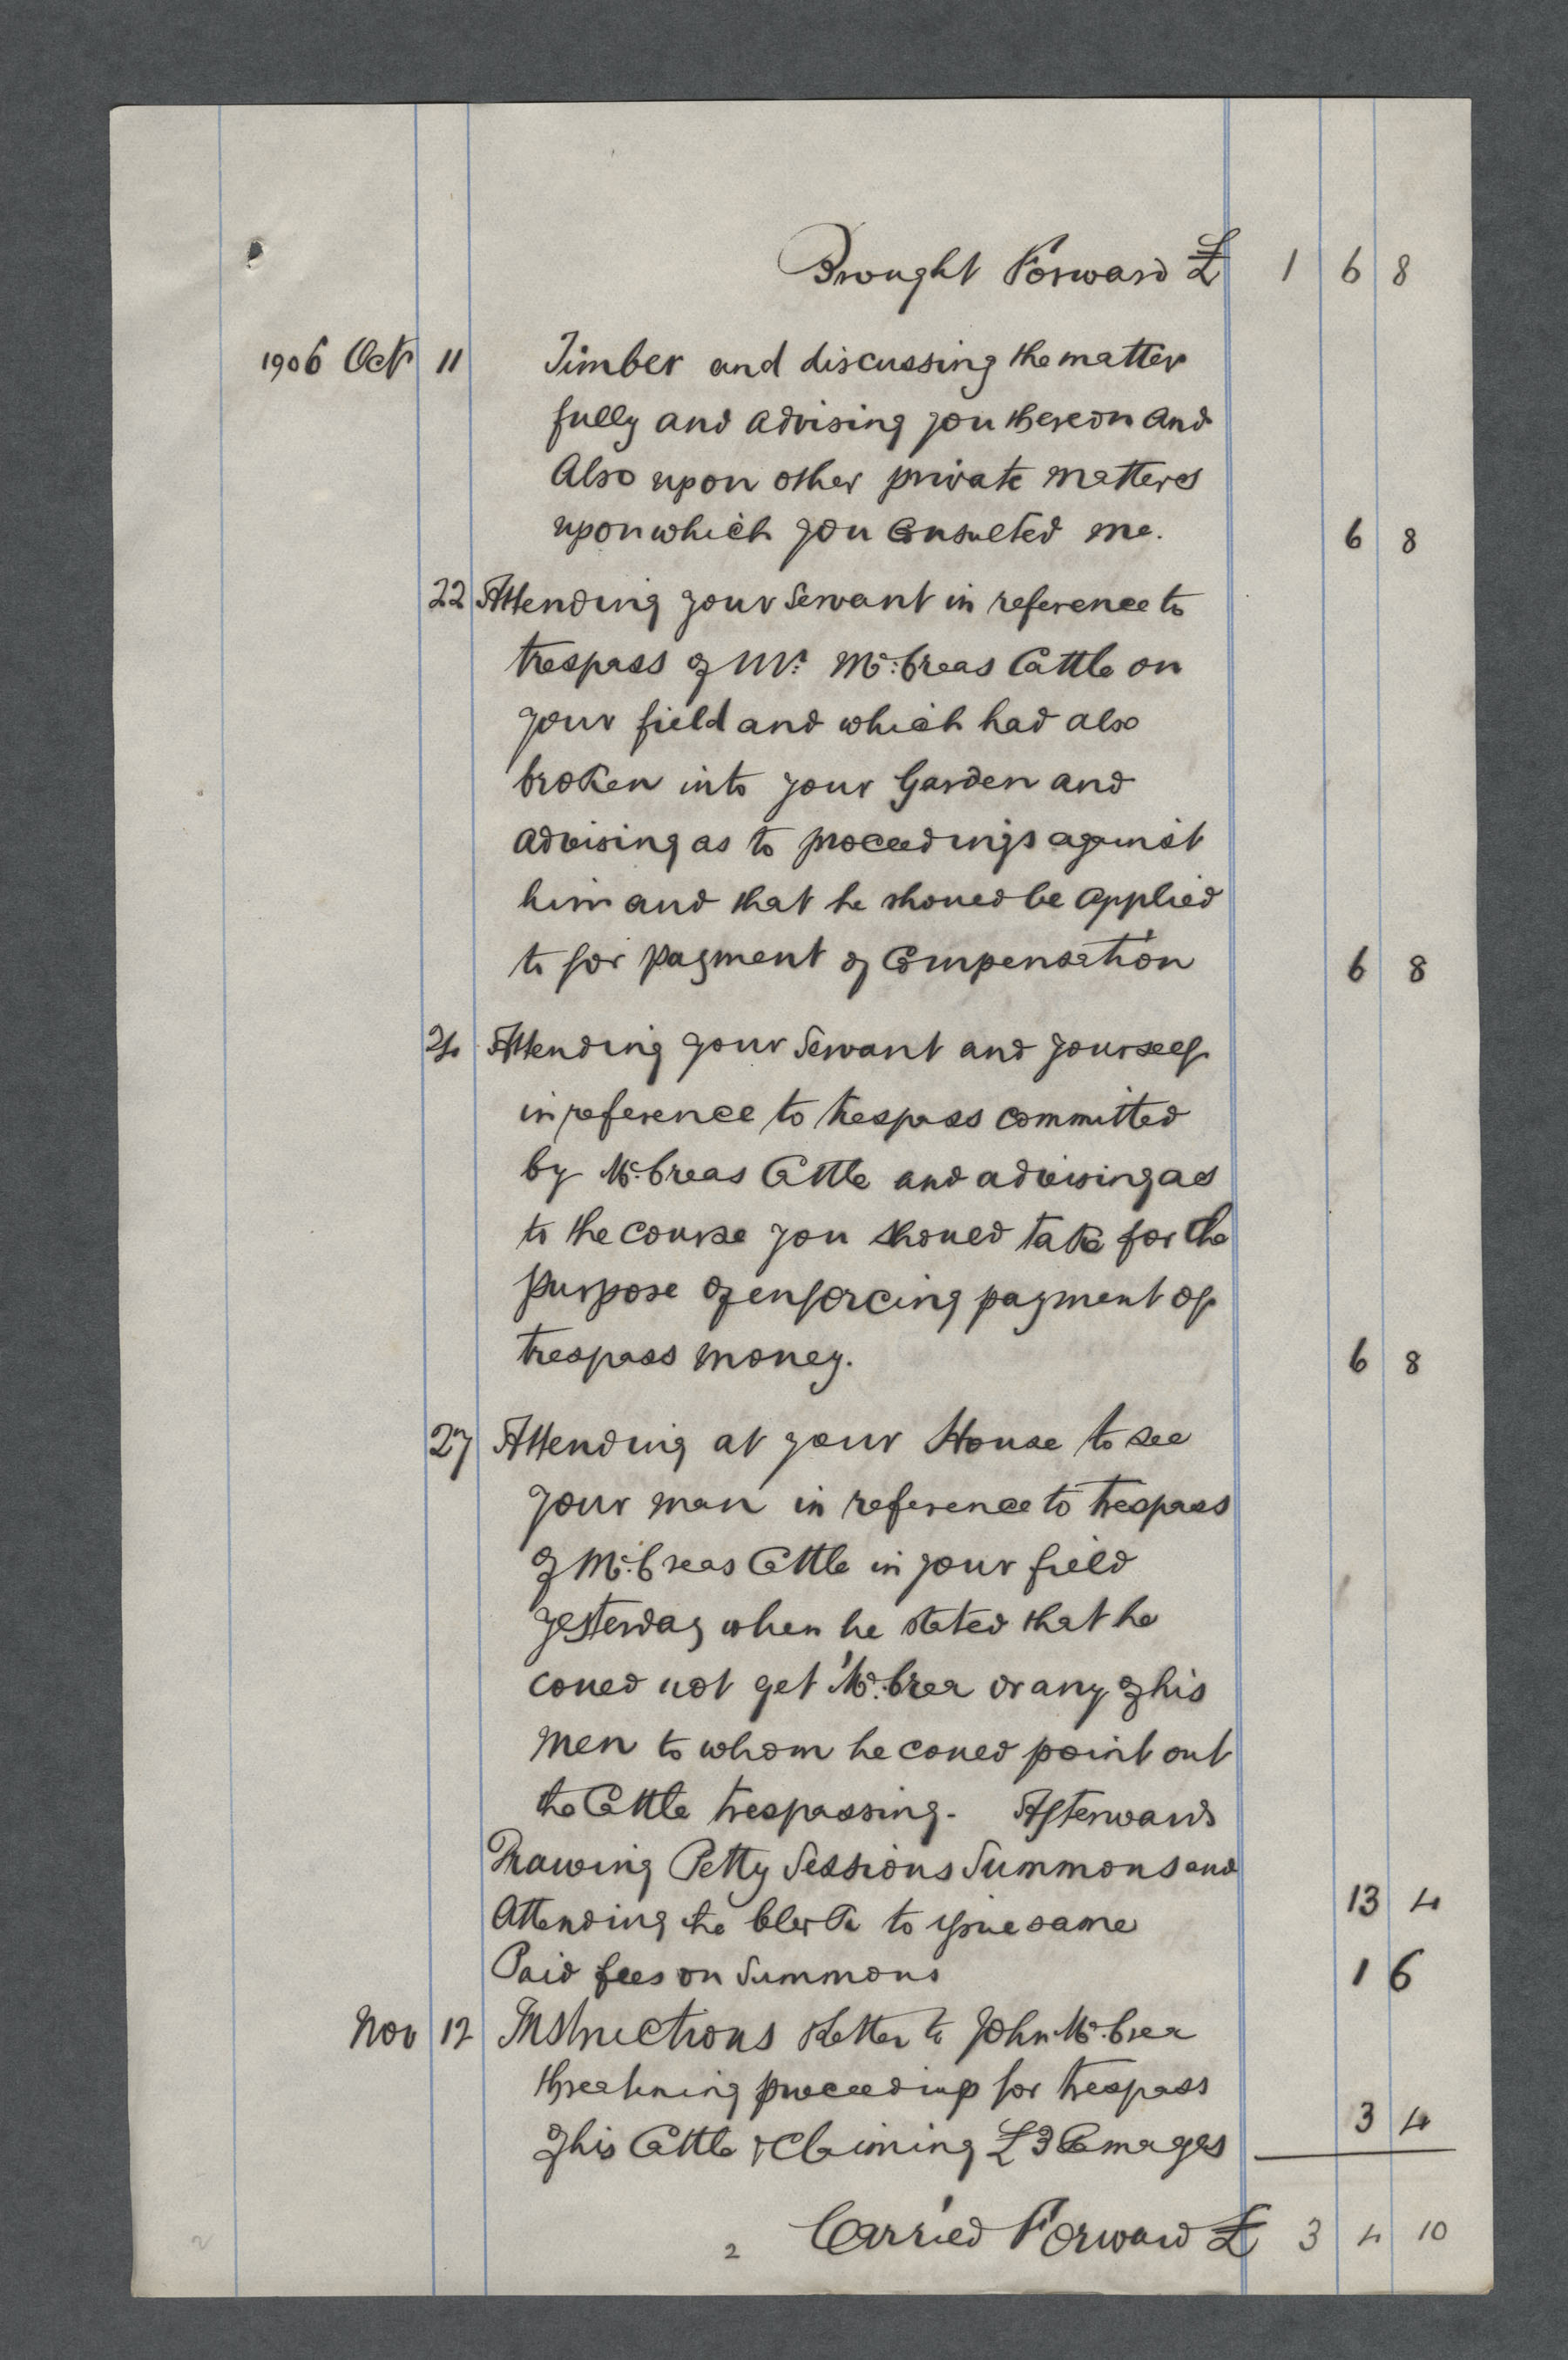 Brought Forward £ 1 6 8
1906 Oct 11 Timber and discussing the matter
fully and advising you thereon and
Also upon other private matters
upon which you Consulted me. 6 8
22 Attending your Servant in reference to
trespass of Mr. McCreas Cattle on
your field and which had also
broken into your Garden and
advising as to proceedings against
him and that he should be applied
to for payment of Compensation 6 8
24 Attending your Servant and yourself
in reference to trespass committed
by McCreas Cattle and advising as
to the course you should take for the
purpose of enforcing payment of
trespass money. 6 8
27 Attending at your House to see
your man in reference to trespass
of McCreas Cattle in your field
yesterday when he stated that he
could not get McCrea or any of his
men to whom he could point out
the Cattle trespassing. Afterwards
Drawing Petty Sessions Summons and
Attending the Clerk to issue same 13 4
Paid fees on Summons 1 6
Nov 12 Instructions & letter to John McCrea
threatening proceedings for trespass
of his Cattle & Claiming £3 Damages 3 4
2 Carried Forward £ 3 4 10